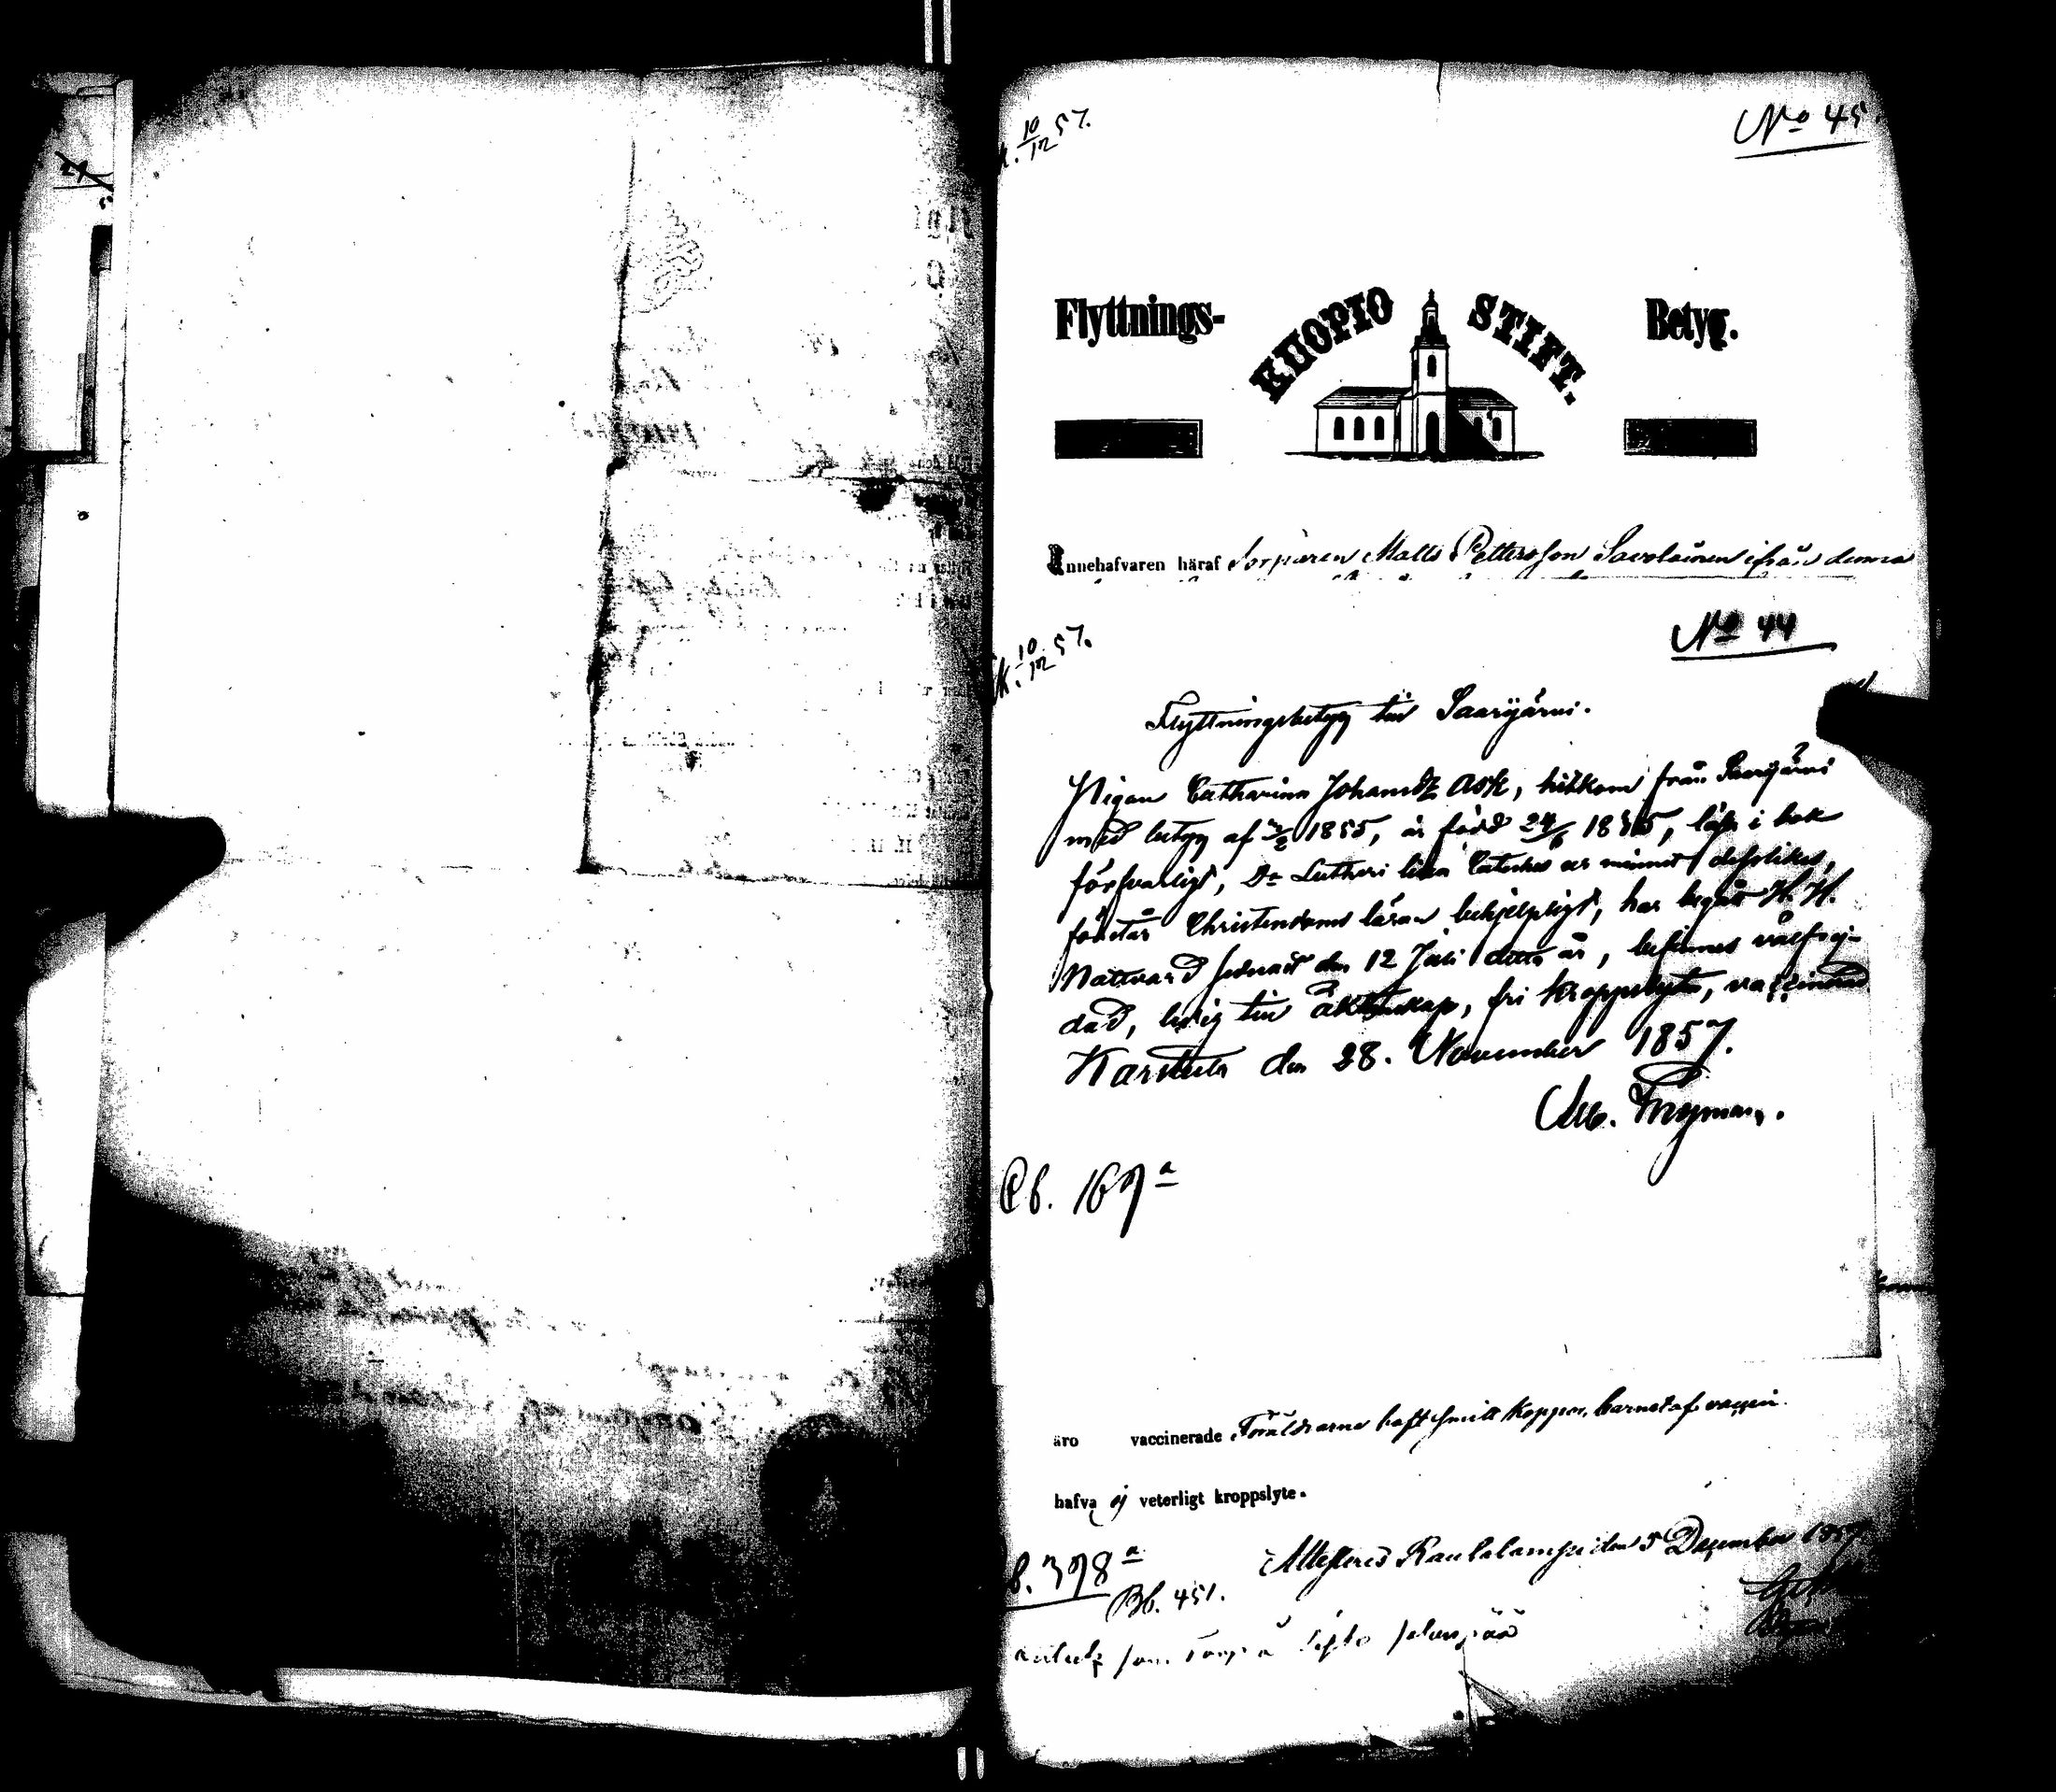 10/12 57.
No 45.
Flyttnings- KUOPIO STIFT. Betyg.
Innehafvaren häraf Torparen Matts Pettersson Savolainen ifrån denna
k. 10/12 57.
No 44
Flyttningsbetyg till Saarijärvi.
Pigan Catharina Johansdr Ask, hitkom från Saarijärvi
med betyg af 1855, är född 24/6 1835, läser i bok
försvarligt, Dr Lutheri lilla Cateches ur minnet desslikes,
förstår Christendoms läran behjelpligt, har begått H. H.
Nattvard sednast den 12 Juli detta år, befinnes välfrej-
dad, ledig till äktenskap, fri kroppslyte, vaccinerad
Karstula den 28. November 1857.
Frgman.
Cb. 167 a
äro vaccinerade Föräldrarne haft smitt koppor, barnet af vaccin.
hafva ej veterligt kroppslyte.
Attesteras Rautalampi den 5 December 1857
b. 398 a
Bb. 451.
som Torp